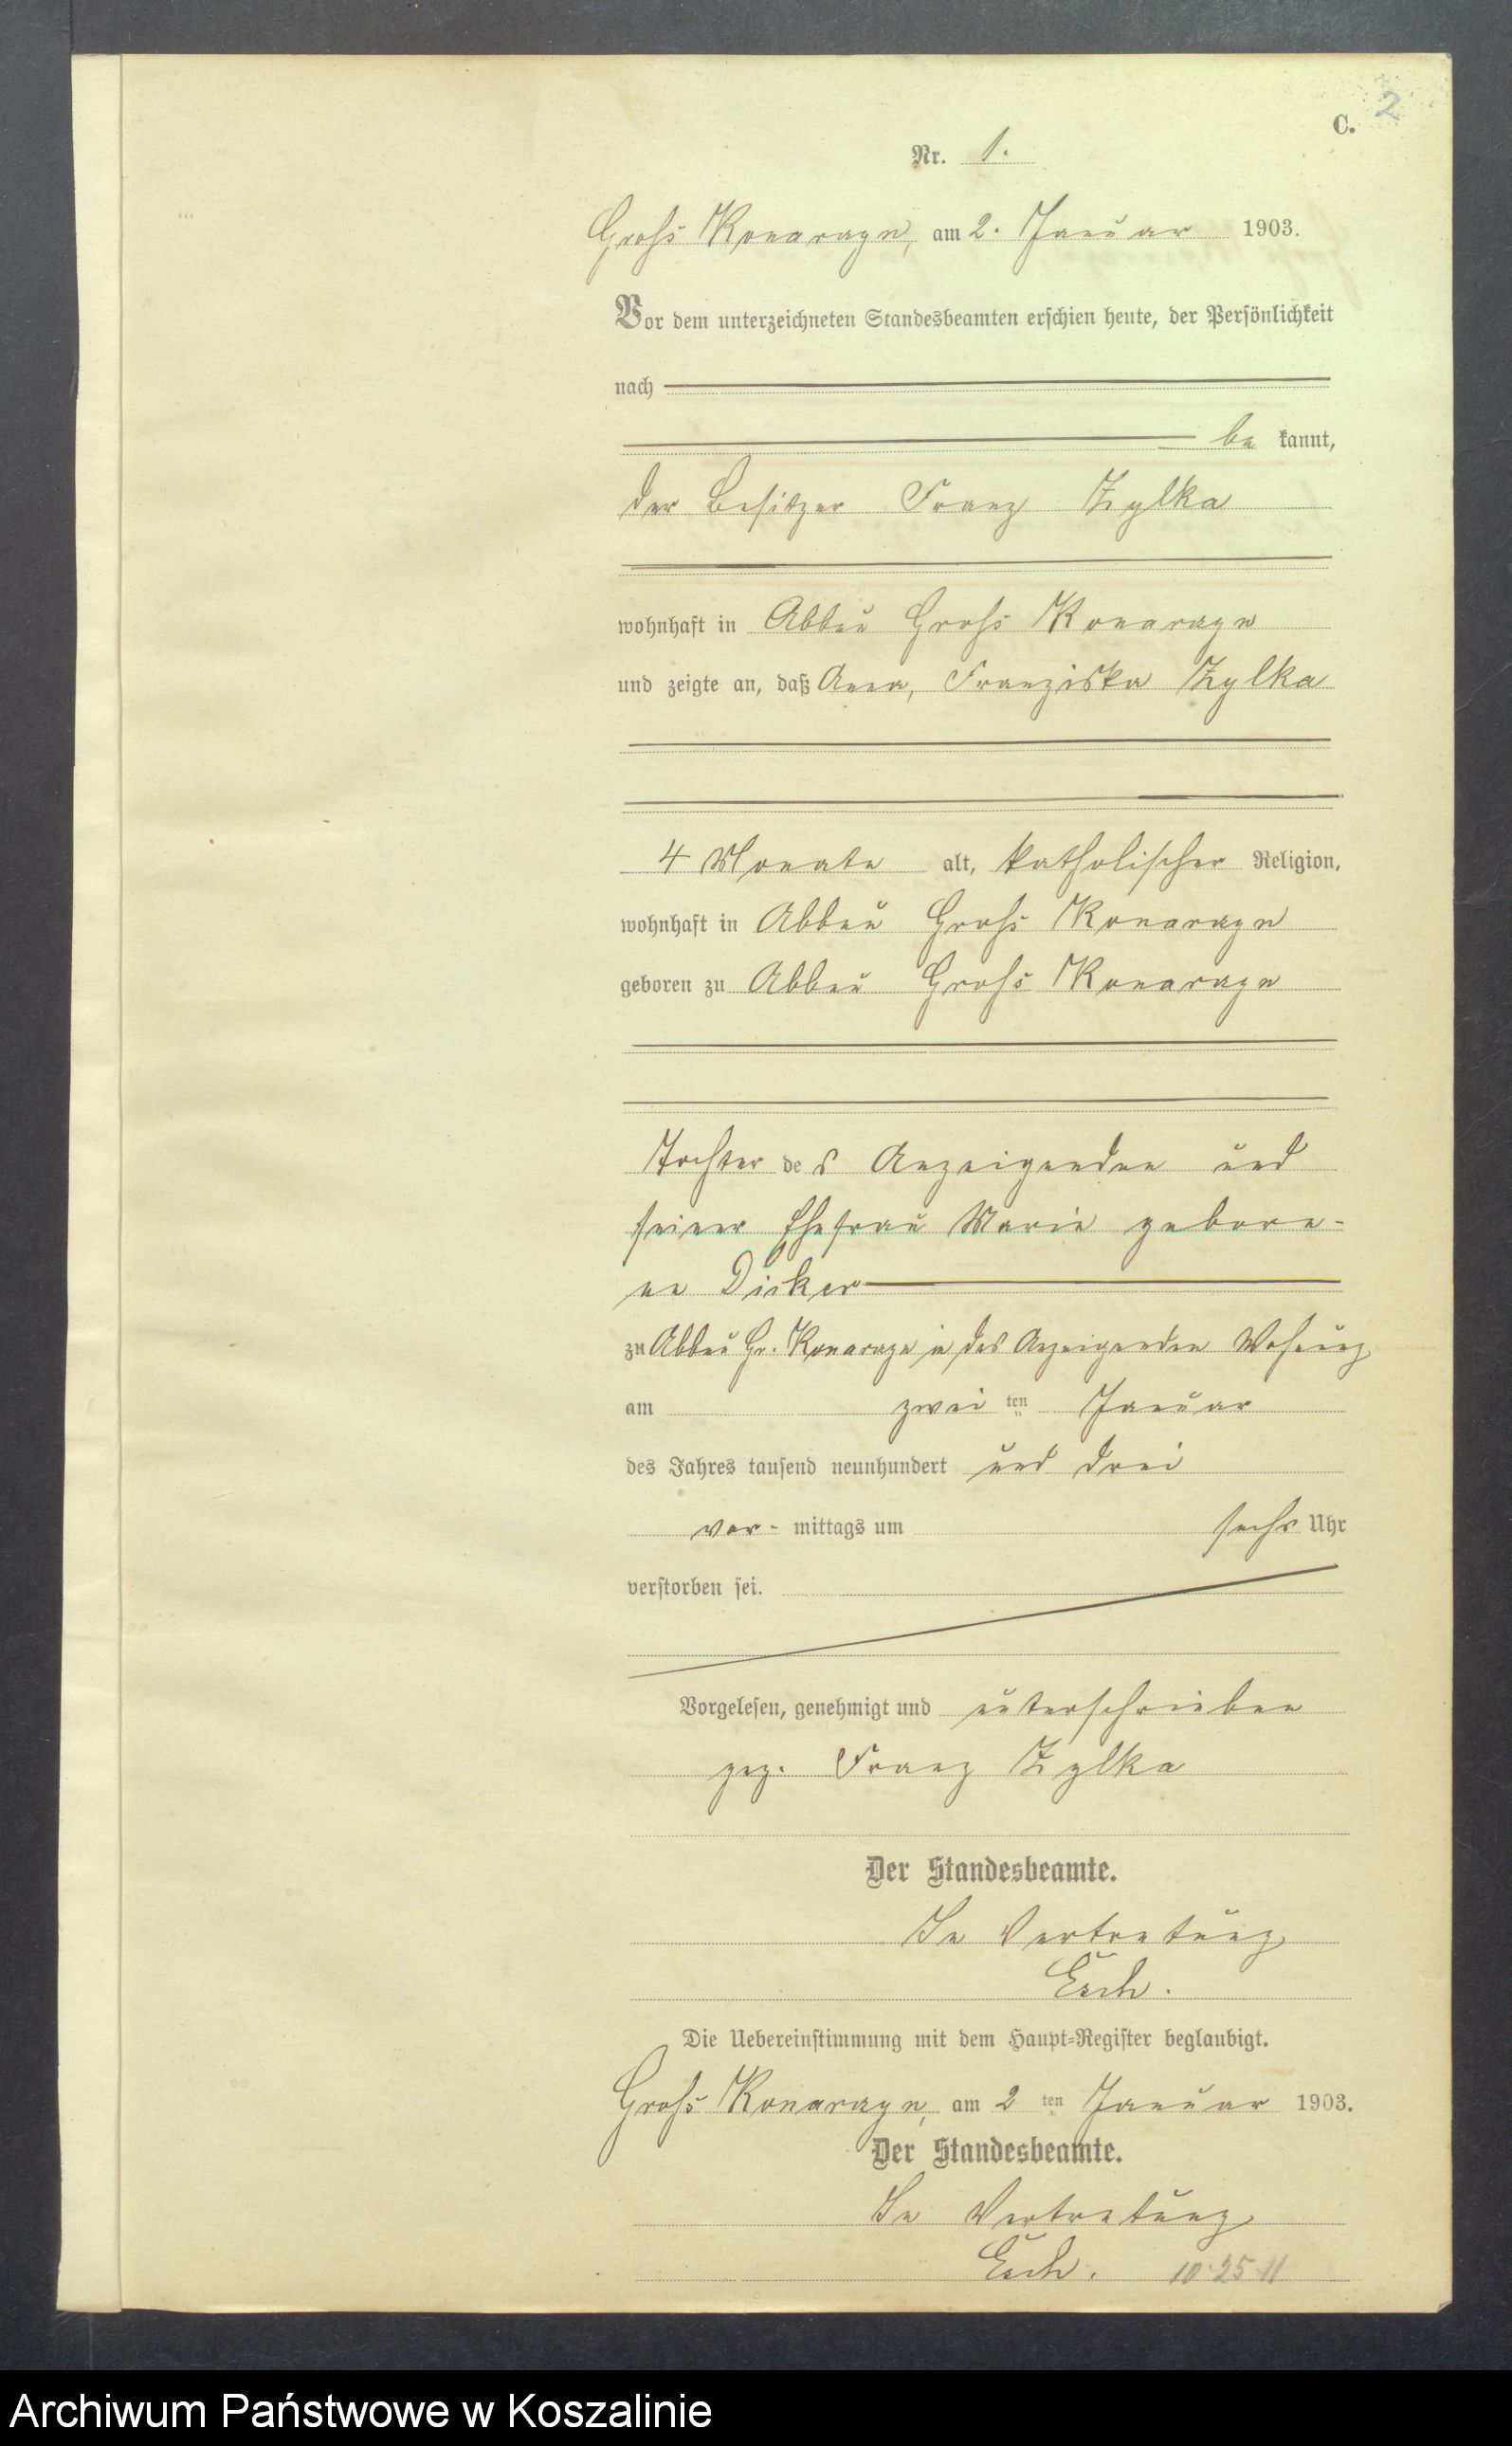 C. 2
Nr. 1.
Groß Konarzyn, am 2. Januar 1903.
Vor dem unterzeichneten Standesbeamten erschien heute, der Persönlichkeit
nach
be kannt,
der Besitzer Franz Zylka
wohnhaft in Abbau Groß Konarzyn
und zeigte an, daß Anna, Franziska Zylka
4 Monate alt, katholischer Religion,
wohnhaft in Abbau Groß Konarzyn
geboren zu Abbau Groß Konarzyn
Tochter des Anzeigenden und
seiner Ehefrau Marie gebore-
ne Dicker
zu Abbau Gr. Konarzyn in des Anzeigenden Wohnung
am zwei ten Januar
des Jahres tausend neunhundert und drei
vor- mittags um sechs Uhr
verstorben sei.
Vorgelesen, genehmigt und unterschrieben
gez. Franz Zylka
Der Standesbeamte.
In Vertretung
Esch.
Die Uebereinstimmung mit dem Haupt-Register beglaubigt.
Groß Konarzyn, am 2 ten Januar 1903.
Der Standesbeamte.
In Vertretung
Esch. 10.25 11
Archiwum Państwowe w Koszalinie